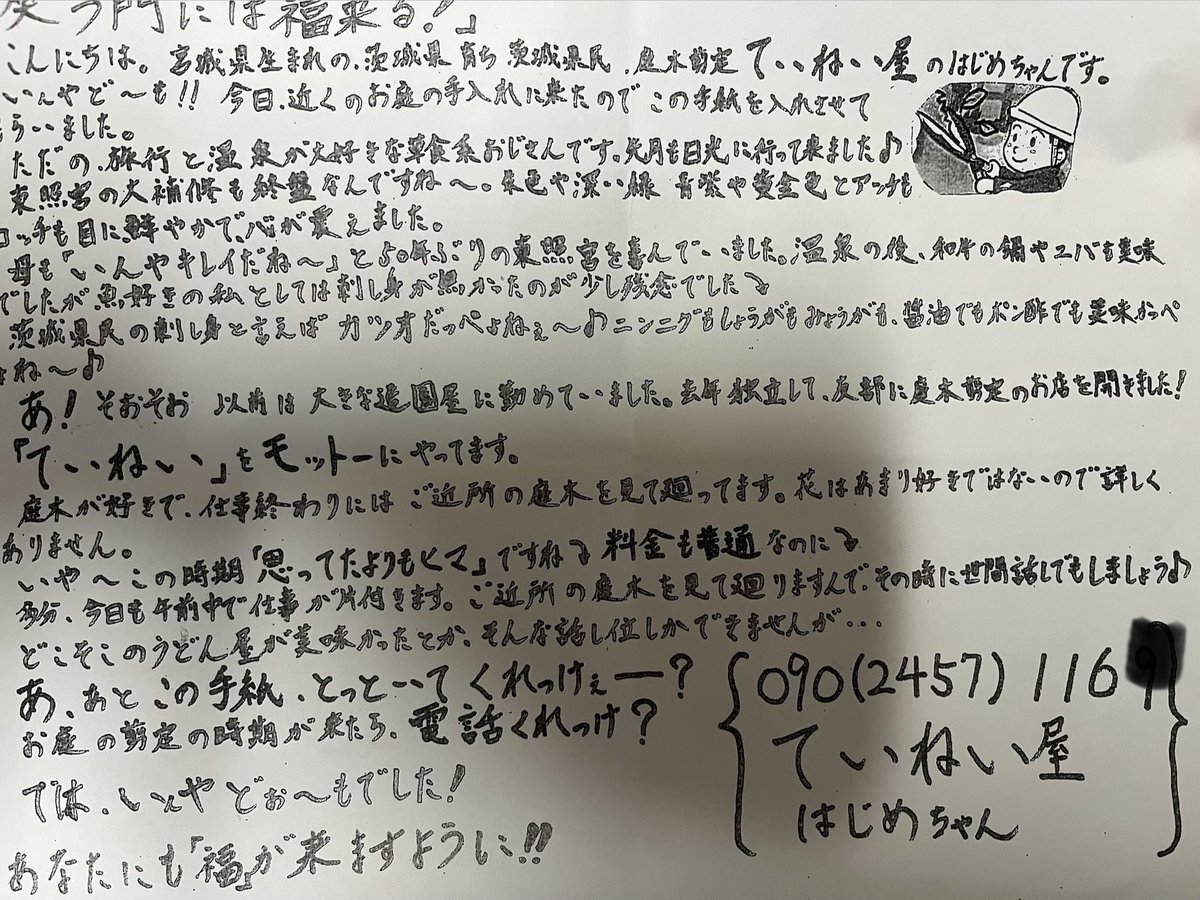 笑う門には福来る!」
こんにちは。宮城県生まれの、茨城県育ち茨城県民、庭木剪定ていねい屋のはじめちゃんです。
いんやど〜も!!今日、近くのお庭の手入れに来たのでこの手紙を入れさせて
もらいました。
ただの、旅行と温泉が大好きな草食系おじさんです。先月も日光に行って来ました♪
東照宮の大補修も終盤なんですね〜。朱色や深い緑、群青や黄金色とアッチも
コッチも目に鮮やかで、心が震えました。
母も「いんやキレイだね〜」と50年ぶりの東照宮を喜んでいました。温泉の後、和牛の鍋やユバも美味
でしたが魚好きの私としては刺し身が無かったのが少し残念でした
茨城県民の刺し身と言えばカツオだっぺよねぇ〜♪ニンニクもしょうがもみょうがも、醤油でもポン酢でも美味かっぺ
よね〜♪
あ!そおそお 以前は大きな造園屋に勤めていました。去年独立して、友部に庭木剪定のお店を開きました!
「ていねい」をモットーにやってます。
庭木が好きで、仕事終わりにはご近所の庭木を見て廻ってます。花はあまり好きではないので詳しく
ありません。
いや〜この時期「思ってたよりもヒマ」ですね 料金も普通なのに
多分、今日も午前中で仕事が片付きます。ご近所の庭木を見て廻りますんで、その時に世間話でもしましょう♪
どこそこのうどん屋が美味かったとか、そんな話し位しかできませんが・・・
あ、あとこの手紙、とっと〜いてくれっけぇー?
お庭の剪定の時期が来たら、電話くれっけ?
では、いんやどぉ〜もでした!
あなたにも「福」が来ますように!!
090(2457)1169
ていねい屋
はじめちゃん